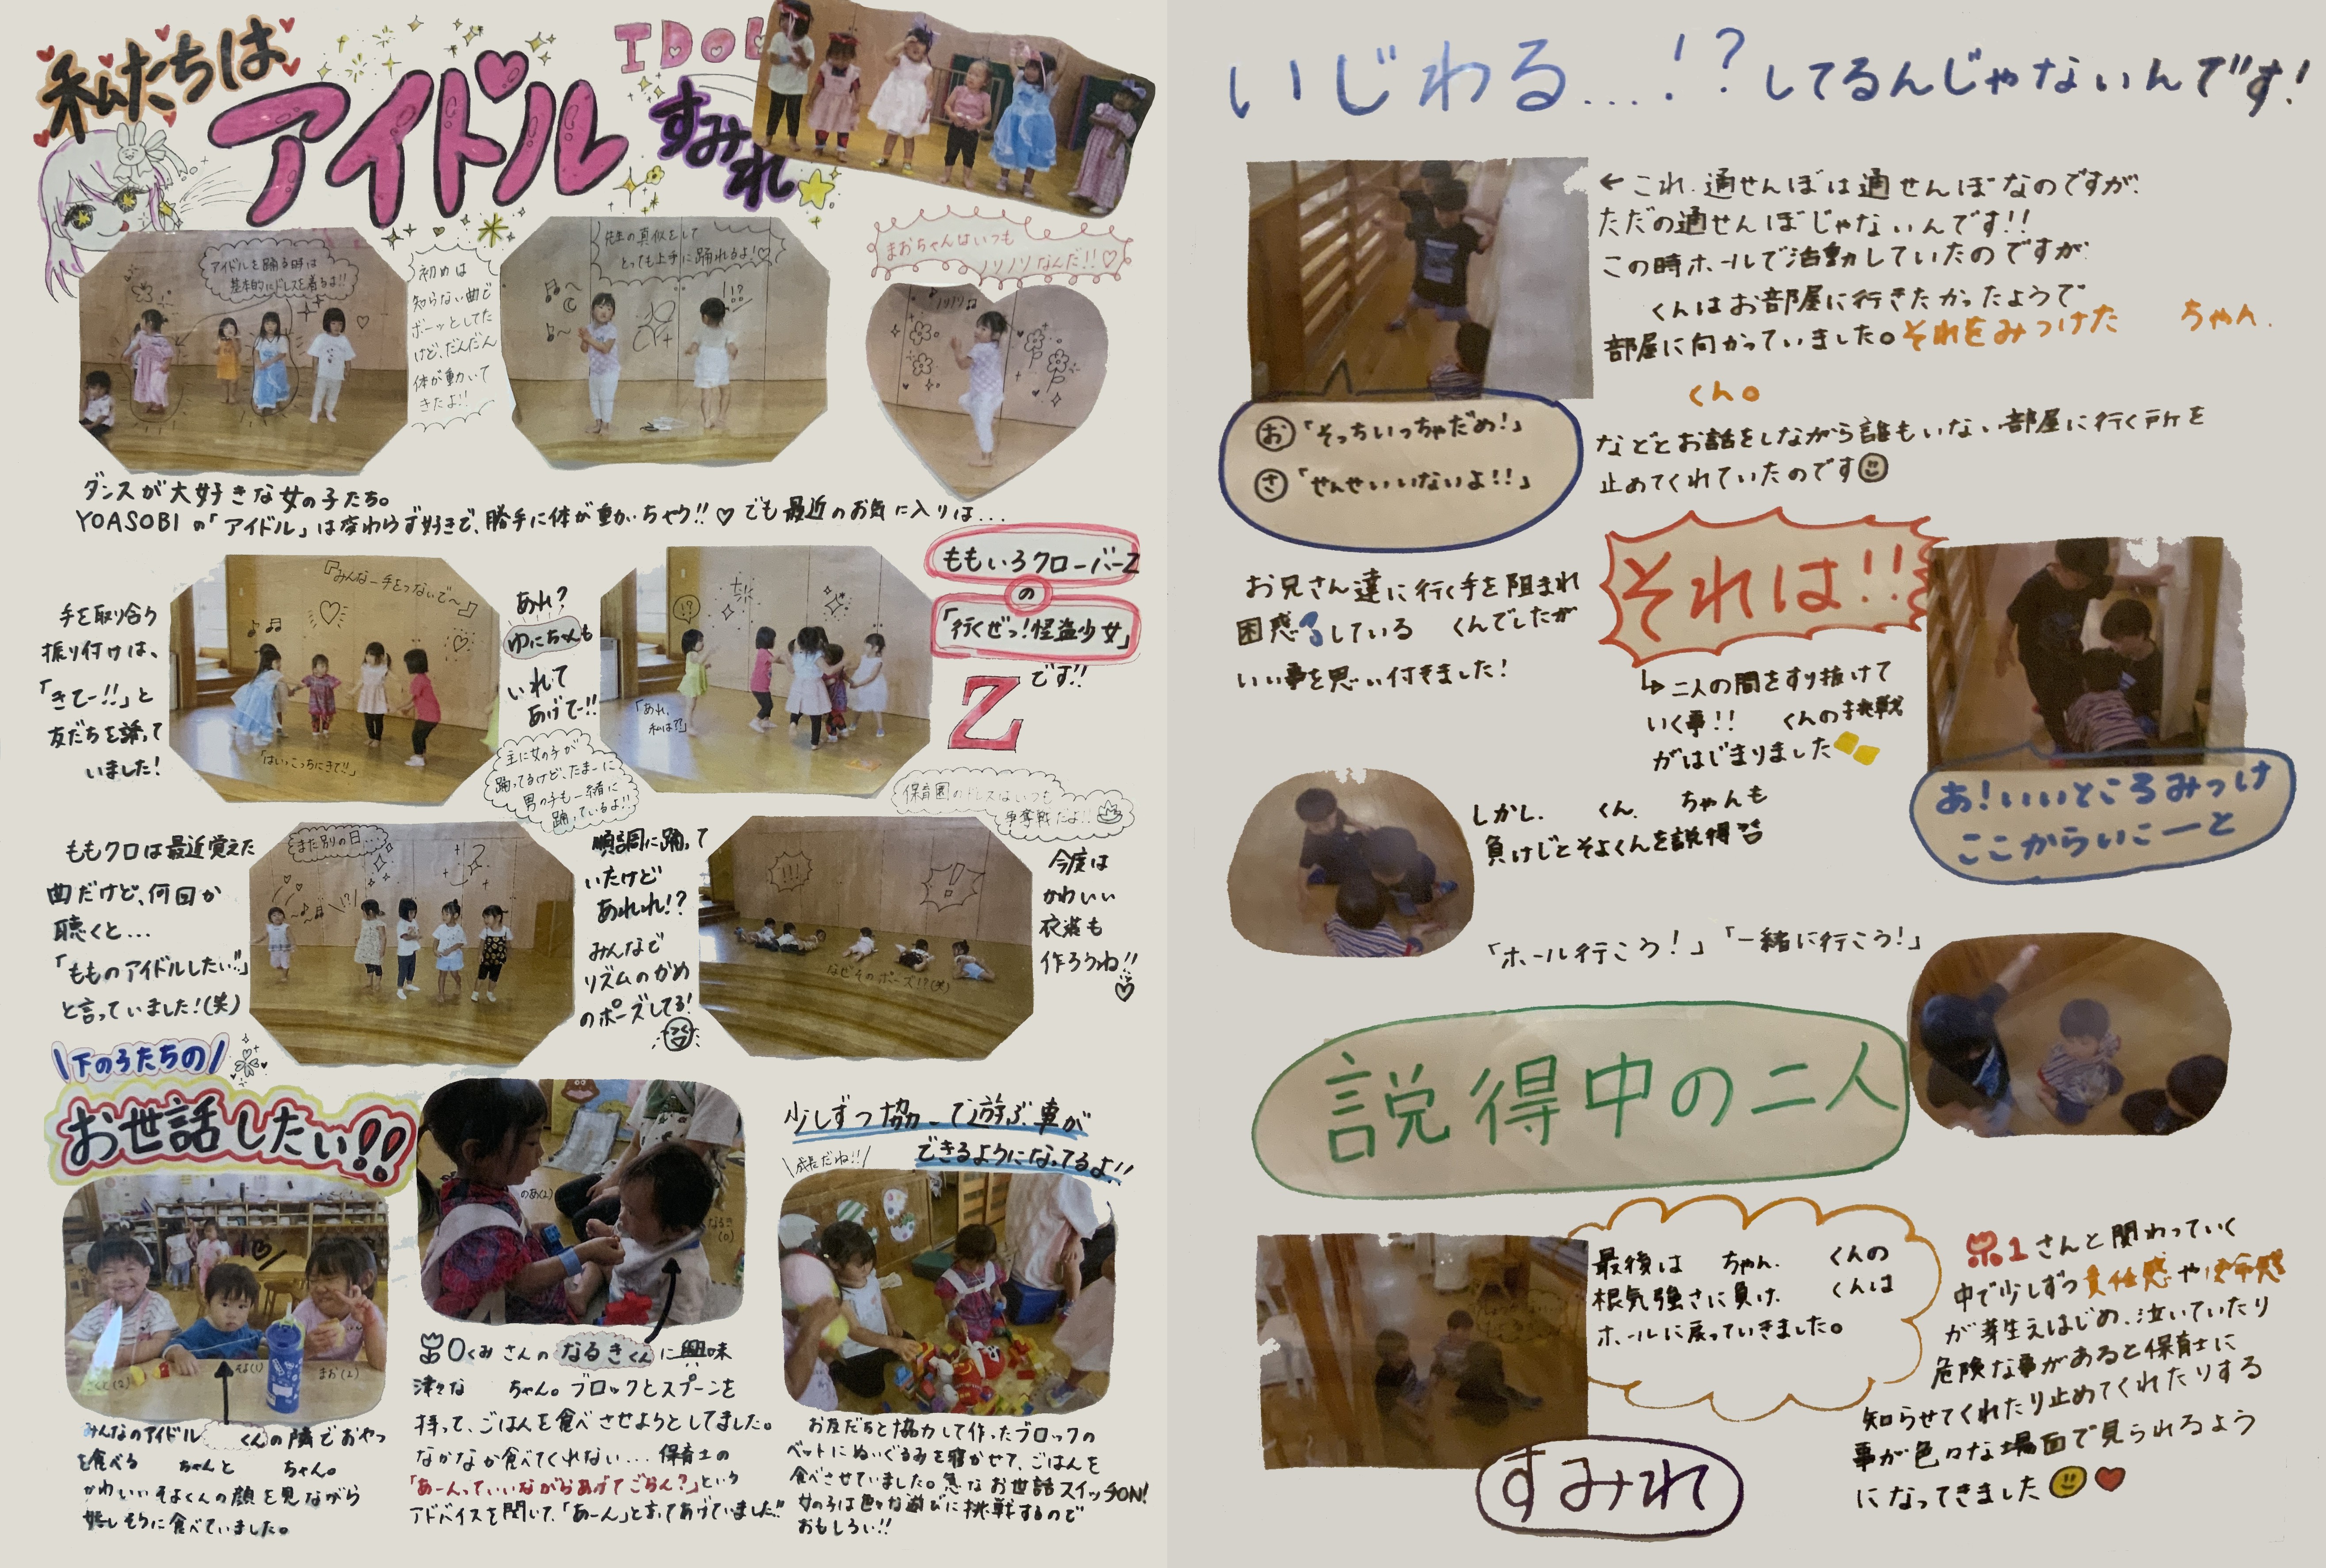 私たちは
アイドル
IDOL
すみれ
アイドルを踊る時は
基本的にドレスを着るよ!!
初めは
知らない曲で
ボーッとしてた
けど、だんだん
体が動いて
きたよ!!
先生の真似をして
とっても上手に踊れるよ!♡
まおちゃんはいつも
ノリノリなんだ!!♡
ノリノリ♫
ダンスが大好きな女の子たち。
YOASOBIの「アイドル」は変わらず好きで、勝手に体が動いちゃう!!♡でも最近のお気に入りは...
ももいろクローバーZ
の
「行くぜっ!怪盗少女」
です!!
Z
手を取り合う
振り付けは、
「きてー!!」と
友だちを誘って
いました!
『みんなー手をつないで〜』
「はいっこっちにきて!!」
あれ?
ゆにちゃんも
いれて
あげてー!!
「あれ、
私は?」
主に女の子が
踊ってるけど、たまーに
男の子も一緒に
踊っているよ!!
保育園のドレスはいつも
争奪戦だよ!!
ももクロは最近覚えた
曲だけど、何回か
聴くと...
「もものアイドルしたい!!」
と言っていました!(笑)
また別の日...
順調に踊って
いたけど
あれれ!?
みんなで
リズムのかめ
のポーズしてる!
なぜそのポーズ!?(笑)
今度は
かわいい
衣装も
作ろうね!!
♡
下の子たちの
お世話したい!!
みんなのアイドル くんの隣でおやつ
を食べる ちゃんと ちゃん。
かわいいそよくんの顔を見ながら
嬉しそうに食べていました。
そよ(1)
まお(2)
のあ(2)
なるき
(0)
0くみさんのなるきくんに興味
津々な ちゃん。ブロックとスプーンを
持って、ごはんを食べさせようとしてました。
なかなか食べてくれない...保育士の
「あーんっていいながらあげてごらん?」という
アドバイスを聞いて、「あーん」と言ってあげていました!!
少しずつ協力して遊ぶ事が
できるようになってるよ!!
成長だね!!
お友だちと協力して作ったブロックの
ベットにぬいぐるみを寝かせて、ごはんを
食べさせていました。急なお世話スイッチON!
女の子は色々な遊びに挑戦するので
おもしろい!!
いじわる...!?してるんじゃないんです!
←これ、通せんぼは通せんぼなのですが、
ただの通せんぼじゃないんです!!
この時ホールで活動していたのですが
くんはお部屋に行きたかったようで
部屋に向かっていました。それをみつけた ちゃん、
くん。
お「そっちいっちゃだめ!」
さ「せんせいいないよ!!」
などとお話をしながら誰もいない部屋に行く所を
止めてくれていたのです
お兄さん達に行く手を阻まれ
困惑している くんでしたが
いい事を思い付きました!
それは!!
二人の間をすり抜けて
いく事!! くんの挑戦
がはじまりました
あ!いいところみっけ
ここからいこーっと
しかし、 くん、 ちゃんも
負けじとそよくんを説得
「ホール行こう!」「一緒に行こう!」
説得中の二人
最後は ちゃん、 くんの
根気強さに負け、 くんは
ホールに戻っていきました。
1さんと関わっていく
中で少しずつ責任感や使命感
が芽生えはじめ、泣いていたり
危険な事があると保育士に
知らせてくれたり止めてくれたりする
事が色々な場面で見られるよう
になってきました
すみれ